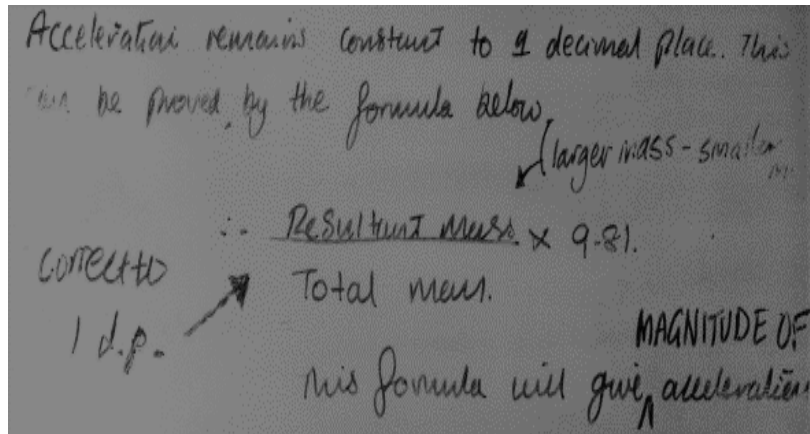 Acceleration remains constant to 1 decimal place. This
can be proved, by the formula below,
(larger mass - smaller
∴ Resultant mass × 9.81.
Total mass.
correct to
1 d.p.
MAGNITUDE OF
This formula will give ∧ acceleration